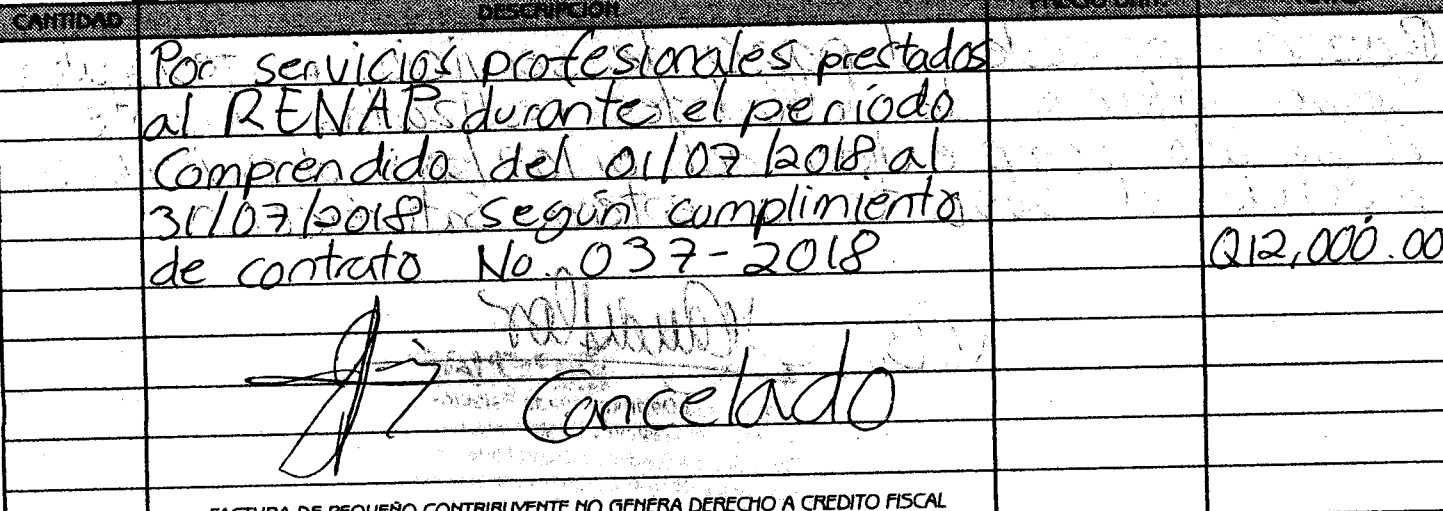 CANTIDAD DESCRIPCION PRECIO UNIT.
Por servicios profesionales prestados
al RENAP durante el período
Comprendido del 01/07/2018 al
31/07/2018 según cumplimiento
de contrato No. 037-2018 Q12,000.00
Cancelado
FACTURA DE PEQUEÑO CONTRIBUYENTE NO GENERA DERECHO A CREDITO FISCAL